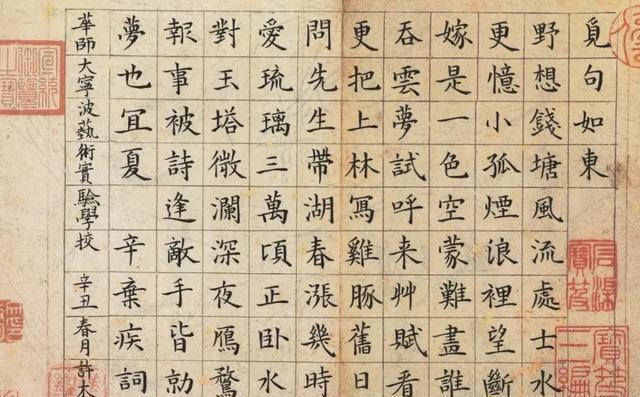 覓句如東
野想錢塘風流處士水
更憶小孤煙浪裡望斷
嫁是一色空蒙難盡誰
吞雲夢試呼來艸賦看
更把上林寫雞豚舊日
問先生帶湖春漲幾時
愛琉璃三萬頃正臥水
對玉塔微瀾深夜鴈鶩
報事被詩逢敵手皆勍
夢也宜夏 辛棄疾詞
華師大寧波藝術實驗學校 辛丑春月許木